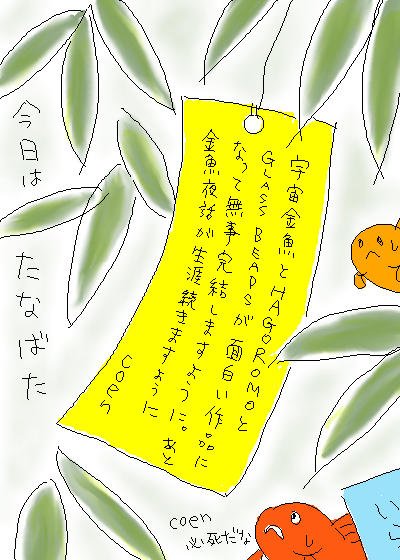 今日は
たなばた
宇宙金魚とHAGOROMOと
GLASS BEADSが面白い作品に
なって無事完結しますように。あと
金魚夜話が生涯続きますように
coen
coen
必死だな